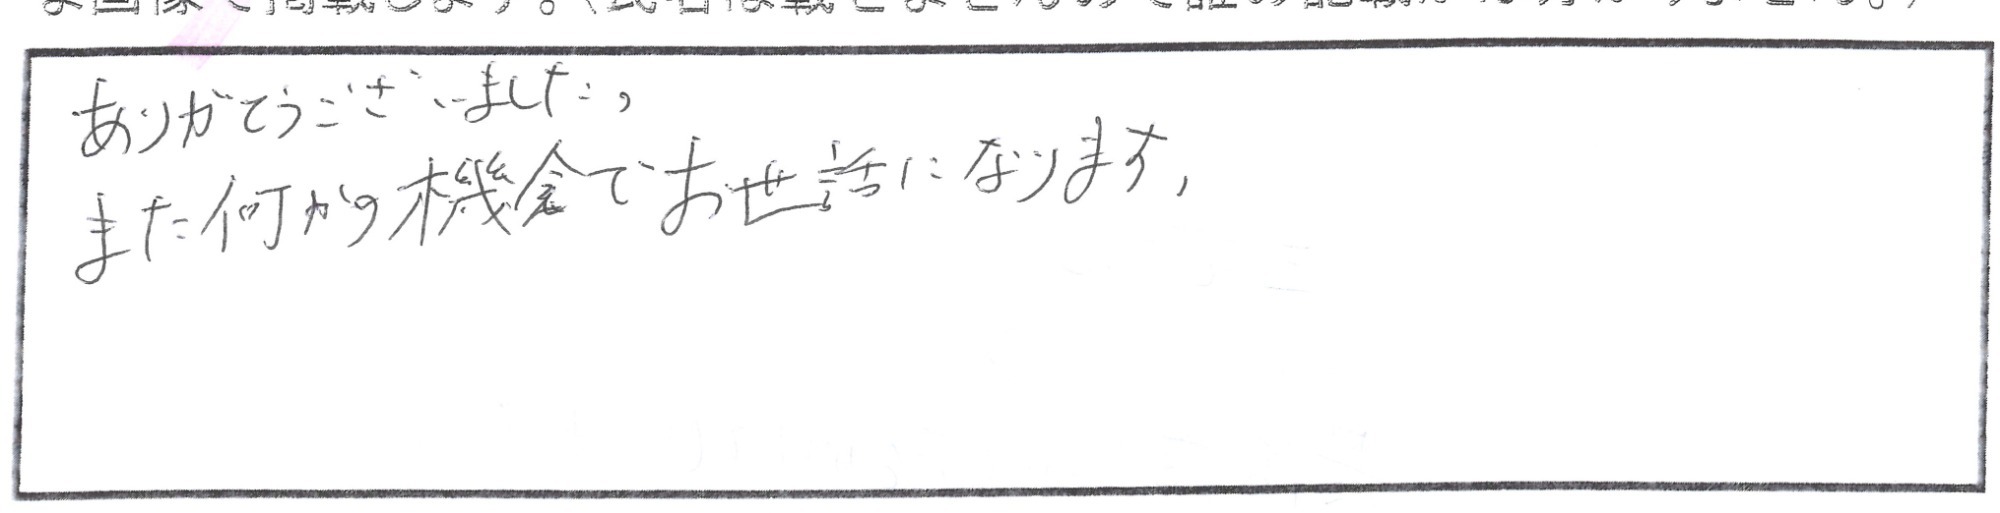 ありがとうございました。
また何かの機会でお世話になります。